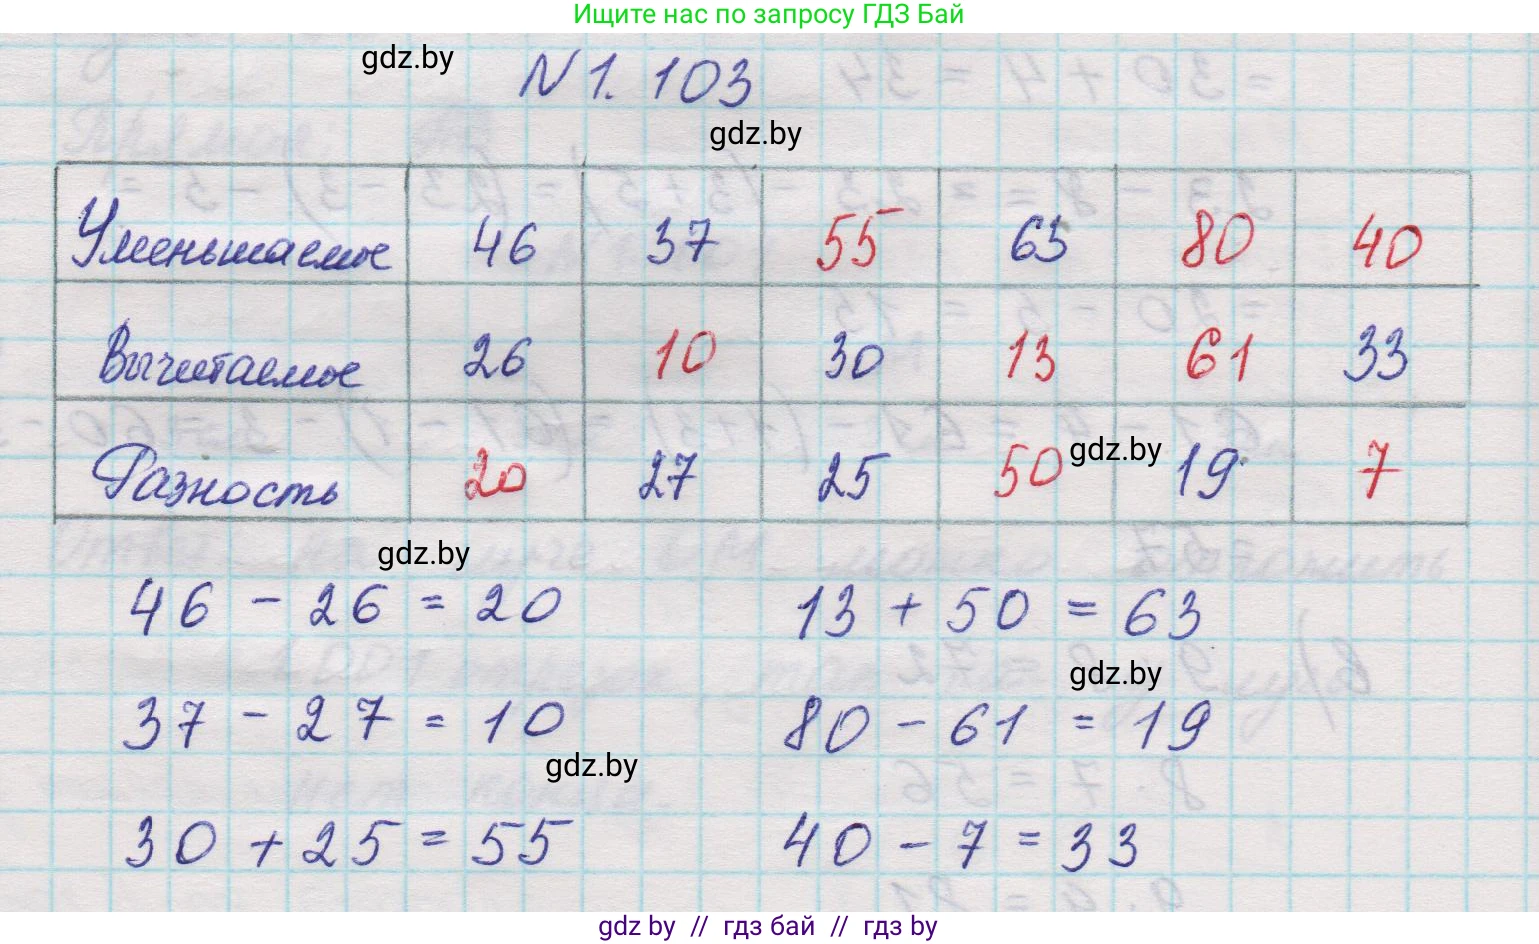 Ищите нас по запросу ГДЗ Бай
gdz.by
N 1. 103
gdz.by
Уменьшаемое 46 37 55 63 80 40
Вычитаемое 26 10 30 13 61 33
Разность 20 27 25 50 19 7
gdz.by
gdz.by
46 - 26 = 20 13 + 50 = 63
gdz.by
37 - 27 = 10 80 - 61 = 19
gdz.by
30 + 25 = 55 40 - 7 = 33
gdz by // гдз бай // гдз by